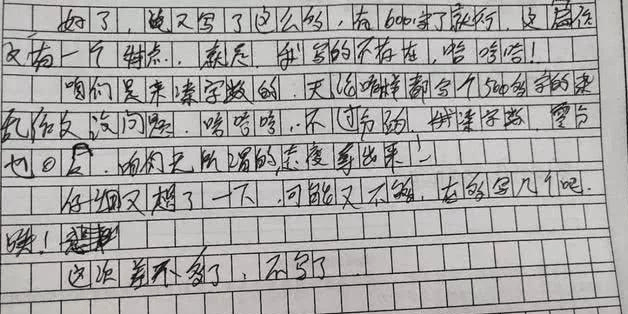 好了，也又写了这么多，有600字了就行，这篇作
文有一个特点，就是，我写的不存在，哈哈哈！
咱们是来凑字数的，天论咱样都写个500多字的杂
乱作文没问题，哈哈哈，不过分的，拼凑字数，
也，咱们无所谓的态度拿出来！
仔细又想了一下，可能又不够，在多写几个吧.
哄！
这次差不多了，不写了